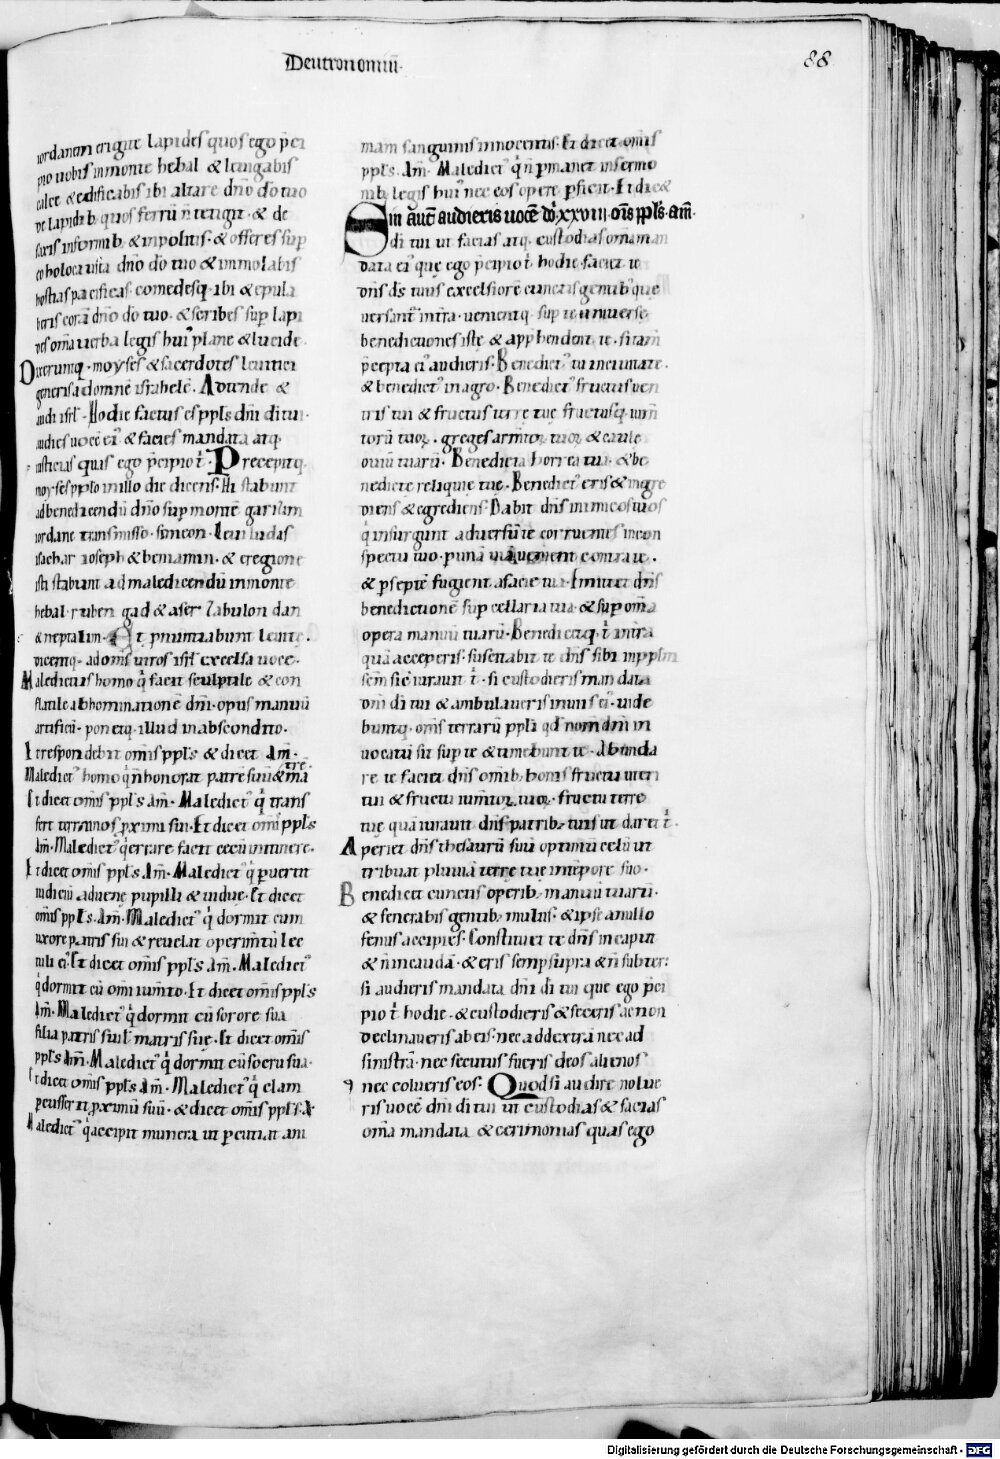 Deutronomiū.
88
iordanem erigite lapides quos ego p̄ci
pio uobis in monte hebal & leuigabis
calce & edificabis ibi altare dn̄o dō tuo
de lapidib quos ferrū n̄ tetigit · & de
saxis informib & inpolitis · & offeres sup
eo holocausta dn̄o dō tuo & immolabis
hostias pacificas · comedesq · ibi & epula
beris corā dn̄o dō tuo · & scribes sup lapi
des om̄a uerba legis hui᾽ plane & lucide ·
Dixeruntq · moyses & sacerdotes leuitici
generis ad omnē israhelē · Adtende &
audi isrl̄ · Hodie factus es ppl̄s dn̄i di tui ·
audies uocē ei᾽ & facies mandata atq
iusticias quas ego p̄cipio t · Precepitq
moyses pplo in illo die dicens · Hi stabunt
ad benedicendū dn̄o sup montē garizim
iordane transmisso · simeon · leui iudas
isachar ioseph & beniamin · & e regione
isti stabunt ad maledicendū in monte
hebal · ruben gad & aser zabulon dan
& neptalim · Et p̄nuntiabunt leuite ·
dicentq · ad om̄s uiros isrl̄ excelsa uoce ·
Maledictus homo q̄ facit sculptile & con
flatile abhominationē dn̄i · opus manuū
artificū · ponetq · illud in abscondito ·
Et respondebit om̄is ppl̄s & dicet Am̄ ·
Maledict᾽ homo q n̄ honorat patrē suū & mā
trē ·
Et dicet om̄is ppl̄s Am̄ · Maledict᾽ q trans
fert terminos pximi sui · Et dicet om̄is ppl̄s
Am̄ · Maledict᾽ q errare facit cecū in itinere ·
Et dicet om̄is ppl̄s Am̄ · Maledict᾽ q puertit
iudiciū aduenę pupilli & uidue · Et dicet
om̄is ppl̄s · Am̄ · Maledict᾽ q dormit cum
uxore patris sui & reuelat operim̄tū lec
tuli ei᾽ · Et dicet om̄is ppl̄s Am̄ · Maledict᾽
q dormit cū omi ium̄to · Et dicet om̄is ppl̄s
Am̄ · Maledict᾽ q dormit cū sorore sua
filia patris sui ul̄ matris suę · Et dicet om̄is
ppl̄s Am̄ · Maledict᾽ q dormit cū socru sua ·
Et dicet om̄is ppl̄s Am̄ · Maledict᾽ q clam
pcusserit pximū suū · & dicet om̄is ppl̄s · A
Maledict᾽ q accipit munera ut pcutiat ani
mam sanguinis innocentis · Et dicet om̄is
ppl̄s · Am̄ · Maledict᾽ q n̄ pmanet in sermo
nib legis hui᾽ nec eos opere pficit · Et dic&
Sin aut̄ audieris uocē dō · xxviii · om̄s ppl̄s · am̄ ·
di tui ut facias atq custodias om̄a man
data ei᾽ que ego p̄cipio t hodie · faciet te
dn̄s ds̄ tuus excelsiorē cunctis gentib que
uersant᾽ in tra · uenientq · sup te uniuersę
benedictiones iste & app̄hendent te · si tam̄
p̄cepta ei᾽ audieris · Benedict᾽ tu in ciuitate ·
& benedict᾽ in agro · Benedict᾽ fructus uen
tris tui & fructus terre tue fructusq ium̄
torū tuoꝝ · greges arm̄toꝝ tuoꝝ & caule
ouiū tuarū · Benedicta horrea tua · & be
nedicte reliquie tue · Benedict᾽ eris & ingre
diens & egrediens · Dabit dn̄s inimicos tuos
q insurgunt aduersū te corruentes in con
spectu tuo · p unā uiā uenient contra te ·
& p septē fugient a facie tua · Emittet dn̄s
benedictionē sup cellaria tua & sup om̄a
opera manuū tuarū · Benedicetq · t in tra
quā acceperis · suscitabit te dn̄s sibi in pplm
scm̄ sic̄ iurauit t · si custodieris mandata
dn̄i di tui & ambulaueris in uiis ei᾽ · uide
buntq · om̄s terrarū ppli qd nom dn̄i in
uocatū sit sup te & timebunt te · Abunda
re te faciet dn̄s om̄ib bonis fructu uteri
tui & fructu ium̄toꝝ tuoꝝ · fructu terre
tue quā iurauit dn̄s patrib tuis ut daret t ·
Aperiet dn̄s thesaurū suū optimū celū ut
tribuat pluuiā terre tue in tēpore suo ·
Benedicet cunctis operib manuū tuarū ·
& fenerabis gentib multis · & ipse a nullo
fenus accipies · Constituet te dn̄s in caput
& n̄ in caudā · & eris semp supra & n̄ subter ·
si audieris mandata dn̄i di tui que ego p̄ci
pio t hodie · & custodieris & feceris ac non
declinaueris ab eis · nec ad dextrā nec ad
sinistrā · nec secutus fueris deos alienos
nec colueris eos · Quod si audire nolue
ris uocē dn̄i di tui ut custodias & facias
om̄a mandata & cerimonias quas ego
Digitalisierung gefördert durch die Deutsche Forschungsgemeinschaft - DFG